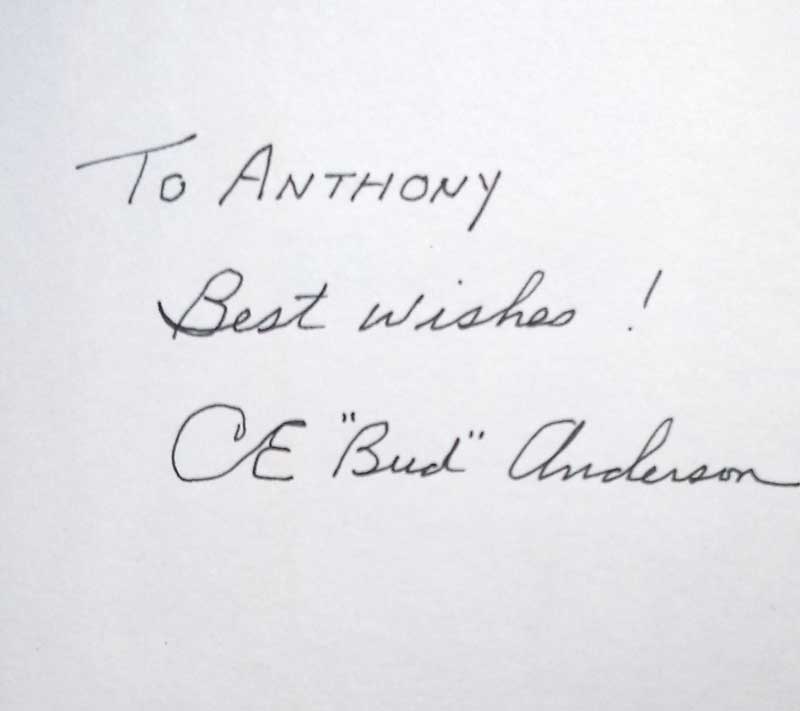 To ANTHONY
Best wishes !
CE "Bud" Anderson